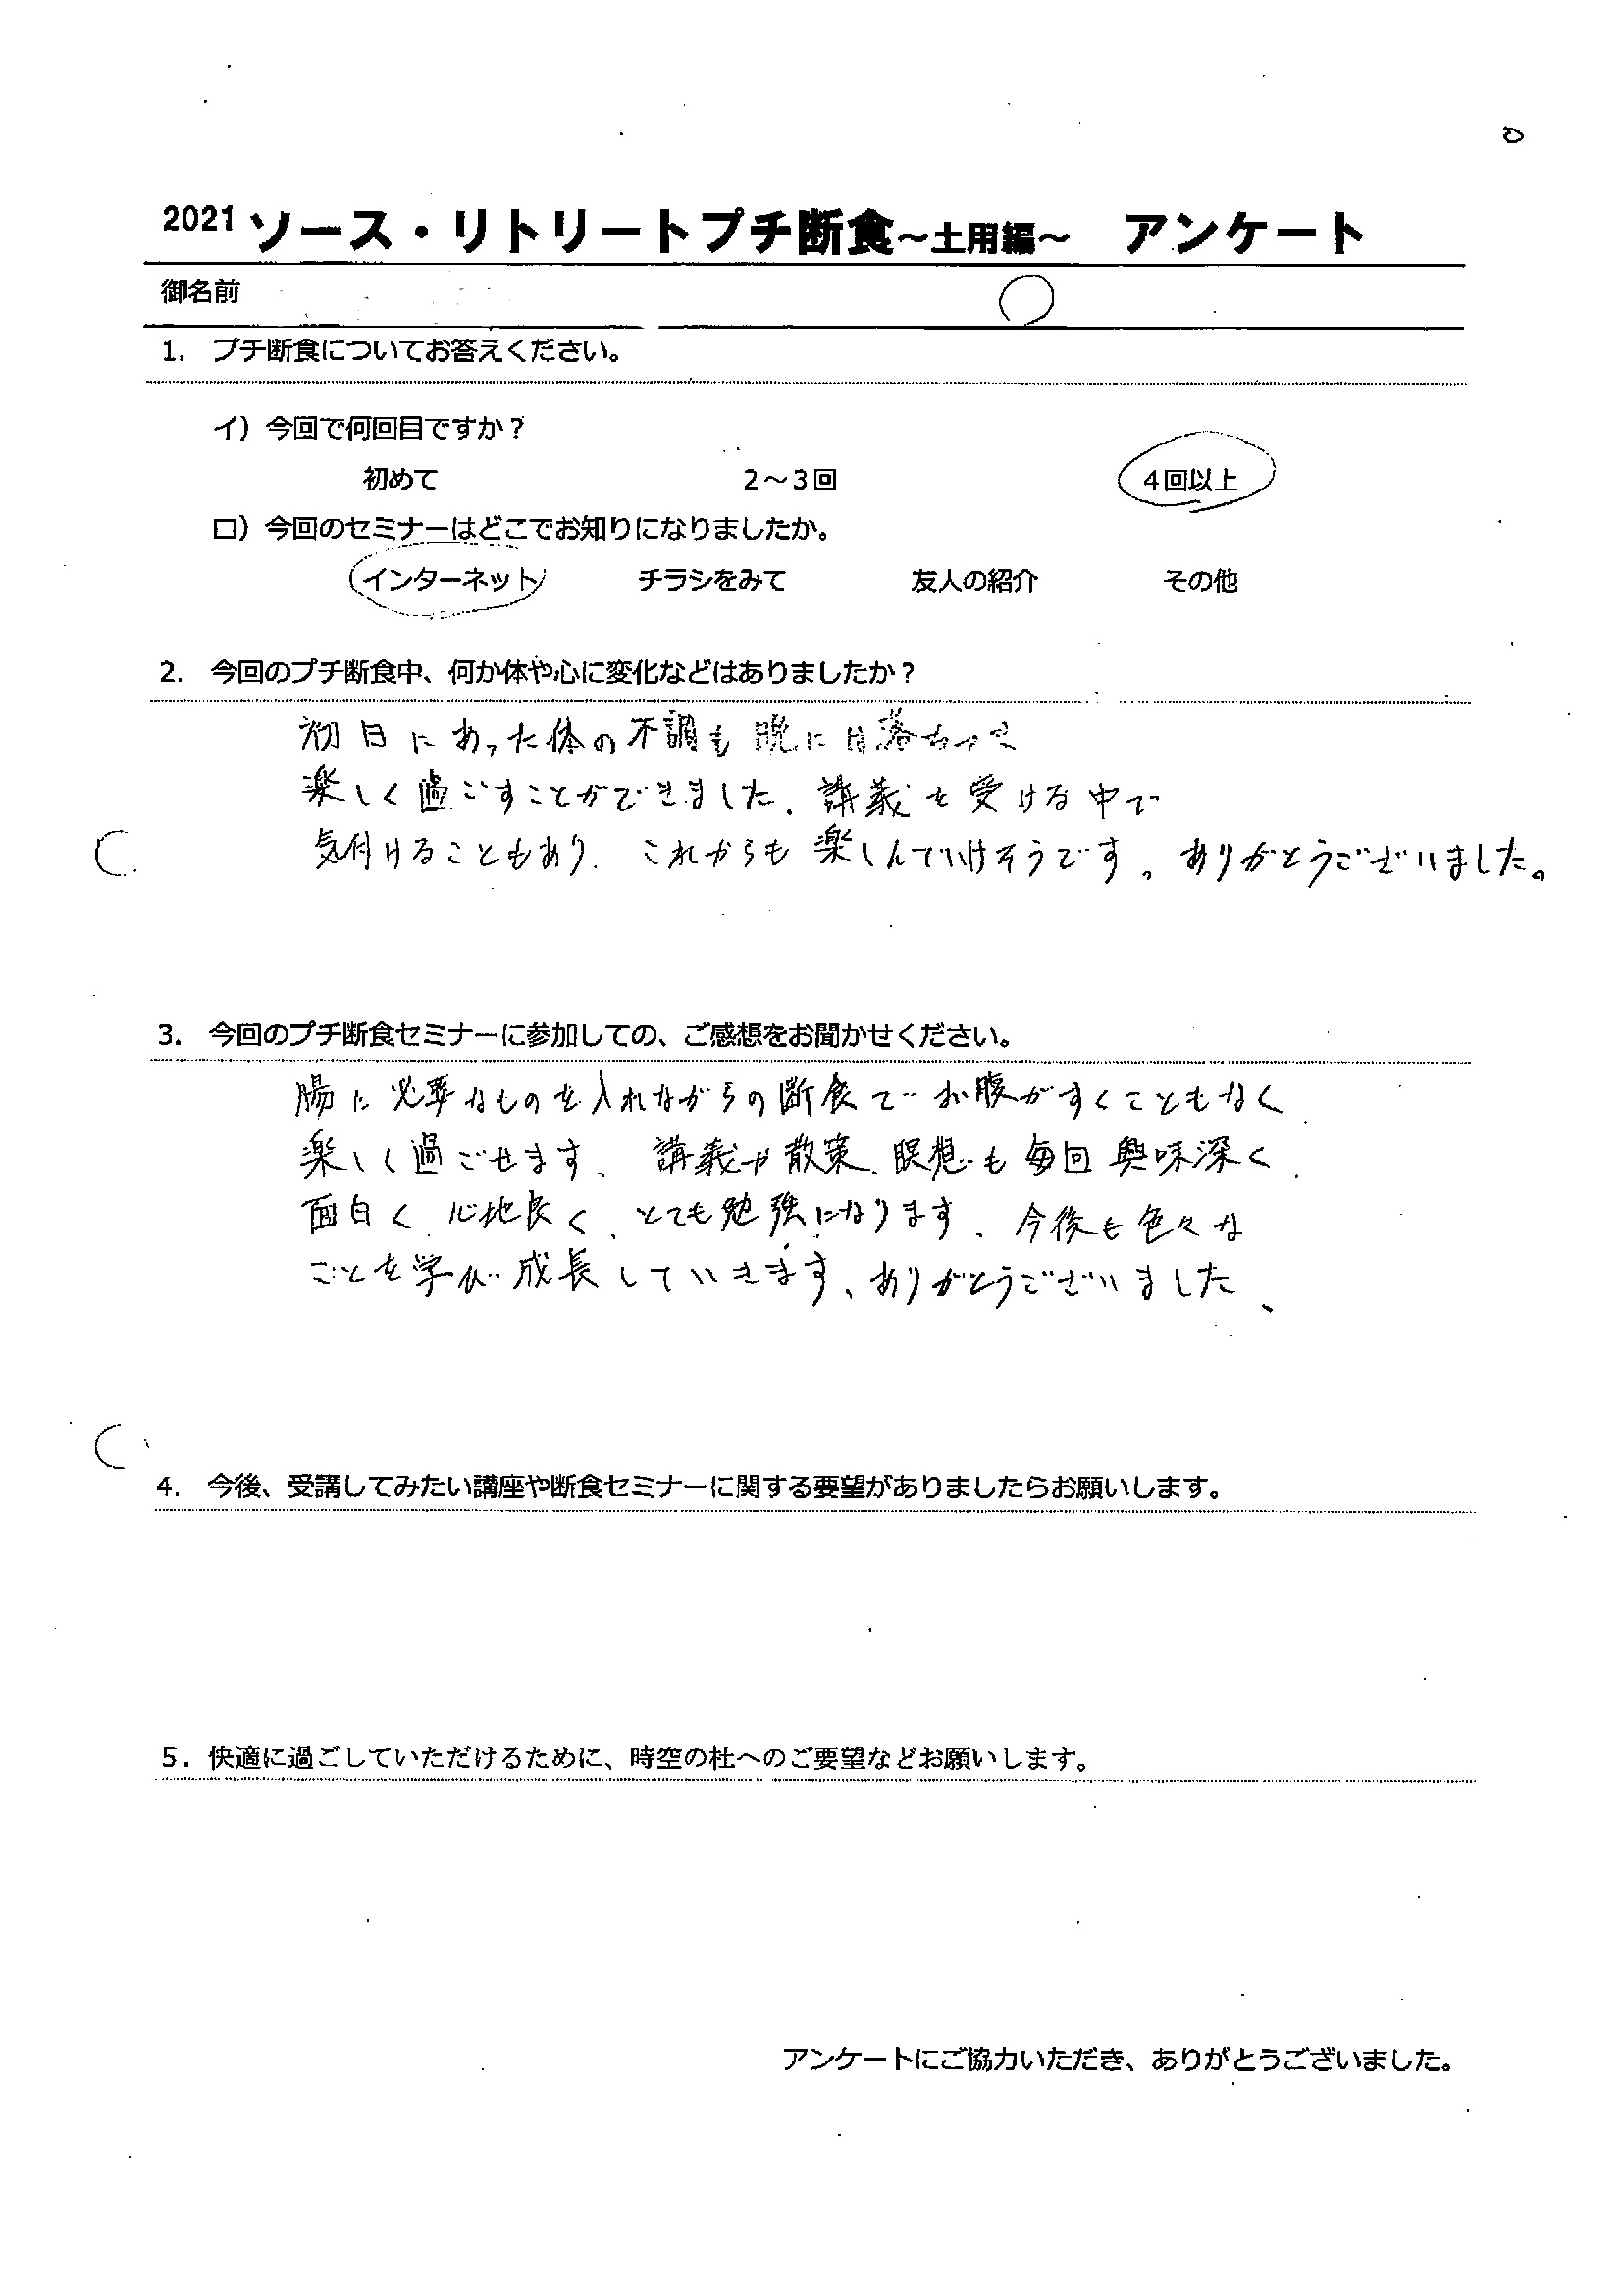 2021 ソース・リトリートプチ断食～土用編～ アンケート
御名前
1. プチ断食についてお答えください。
イ）今回で何回目ですか？
初めて 2～3回 4回以上
ロ）今回のセミナーはどこでお知りになりましたか。
インターネット チラシをみて 友人の紹介 その他
2. 今回のプチ断食中、何か体や心に変化などはありましたか？
初日にあった体の不調も晩には落ちついて
楽しく過ごすことができました、講義を受ける中で
気付けることもあり、これからも楽しんでいけそうです。ありがとうございました。
3. 今回のプチ断食セミナーに参加しての、ご感想をお聞かせください。
腸に必要なものを入れながらの断食でお腹がすくこともなく
楽しく過ごせます、講義や散策、瞑想も毎回興味深く、
面白く、心地良く、とても勉強になります、今後も色々な
ことを学び成長していきます、ありがとうございました、
4. 今後、受講してみたい講座や断食セミナーに関する要望がありましたらお願いします。
5. 快適に過ごしていただけるために、時空の杜へのご要望などお願いします。
アンケートにご協力いただき、ありがとうございました。